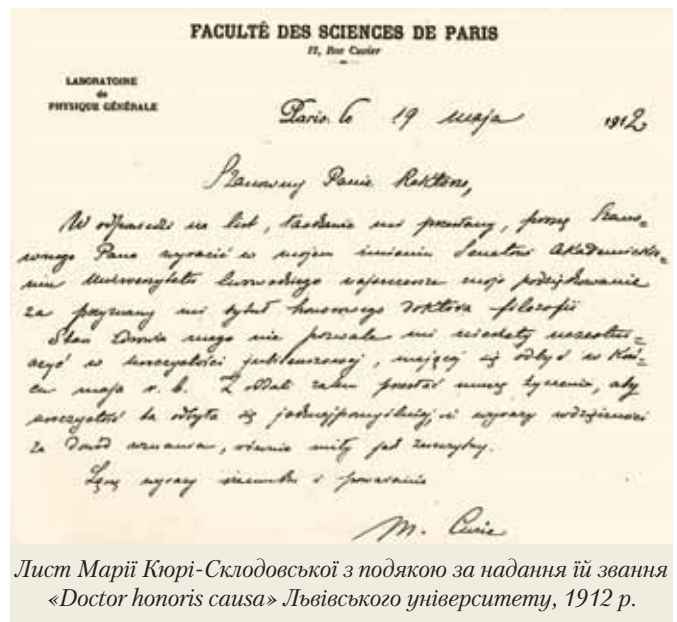 FACULTÉ DES SCIENCES DE PARIS
12, Rue Cuvier
LABORATOIRE
de
PHYSIQUE GÉNÉRALE
Paris, le 19 maja 1912
Szanowny Panie Rektorze,
W odpowiedzi na list, łaskawie mi przesłany, proszę Szano-
wnego Pana wyrazić w mojem imieniu Senatowi Akademickie-
mu Uniwersytetu lwowskiego najszczersze moje podziękowanie
za przyznany mi tytuł honorowego doktora filozofii
Stan zdrowia mego nie pozwala mi niestety uczestni-
czyć w uroczystości jubileuszowej, mającej się odbyć w koń-
cu maja r. b. Z oddali zatem przesłać muszę życzenia, aby
uroczystość ta odbyła się jaknajpomyślniej, i wyrazy wdzięczności
za dowód uznania, równie miły jak zaszczytny.
Łączę wyrazy szacunku i poważania
M. Curie
Лист Марії Кюрі-Склодовської з подякою за надання їй звання
«Doctor honoris causa» Львівського університету, 1912 р.